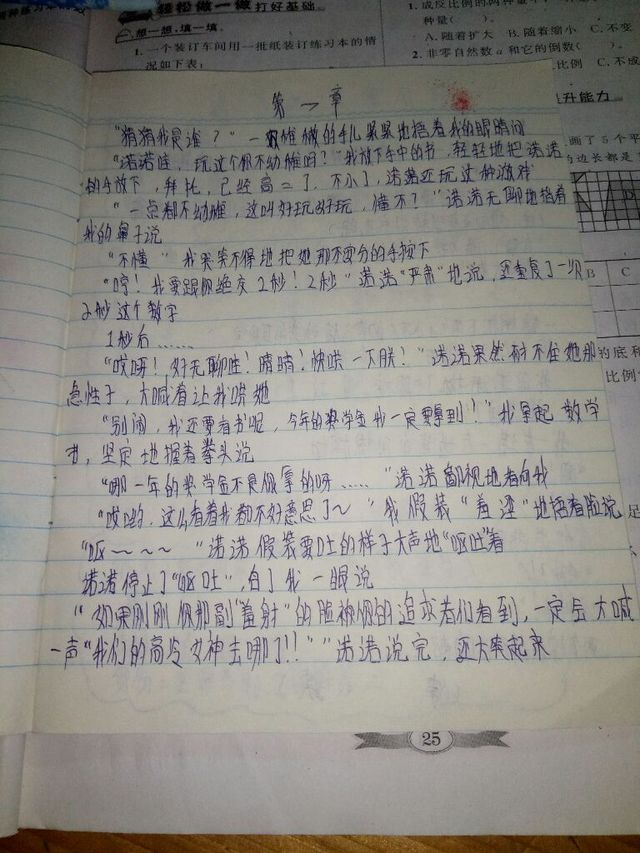 轻松做一做 打好基础
一、想一想,填一填。
1. 一个装订车间用一批纸装订练习本的情
况如下表:
1. 成反比例的两种量中,
种量( )。
A. 随着扩大 B. 随着缩小 C. 不变
2. 非零自然数a和它的倒数( )。
比例 C. 不成
升能力
画了5个平
边长都是
B C
的底和
比例
足
第一章
"猜猜我是谁?"一双稚嫩的手儿紧紧地捂着我的眼睛问
"诺诺哇,玩这个很不幼稚吗?"我放下手中的书,轻轻地把诺诺
的手放下,拜托,已经高二了,不小了,诺诺还玩这种游戏
"一点都不幼稚,这叫好玩好玩,懂不?"诺诺无聊地指着
我的鼻子说
"不懂"我哭笑不得地把她那不安分的手按下
"哼!我要跟你绝交2秒!2秒"诺诺"严肃"地说,还重复了一次
2秒这个数字
1秒后……
"哎呀!好无聊哇!晴晴!快哄一下朕!"诺诺果然耐不住她那
急性子,大喊着让我哄她
"别闹,我还要看书呢,今年的奖学金我一定要拿到!"我拿起数学
书,坚定地握着拳头说
"哪一年的奖学金不是你拿的呀……"诺诺鄙视地看向我
"哎哟,这么看着我都不好意思了~"我假装"羞涩"地捂着脸说
"呕~~~"诺诺假装要吐的样子大声地"呕吐"着
诺诺停止了"呕吐",白了我一眼说
"如果刚刚你那副"羞射"的脸被你的追求者们看到,一定会大喊
一声"我们的高冷女神去哪了!!""诺诺说完,还大笑起来
25